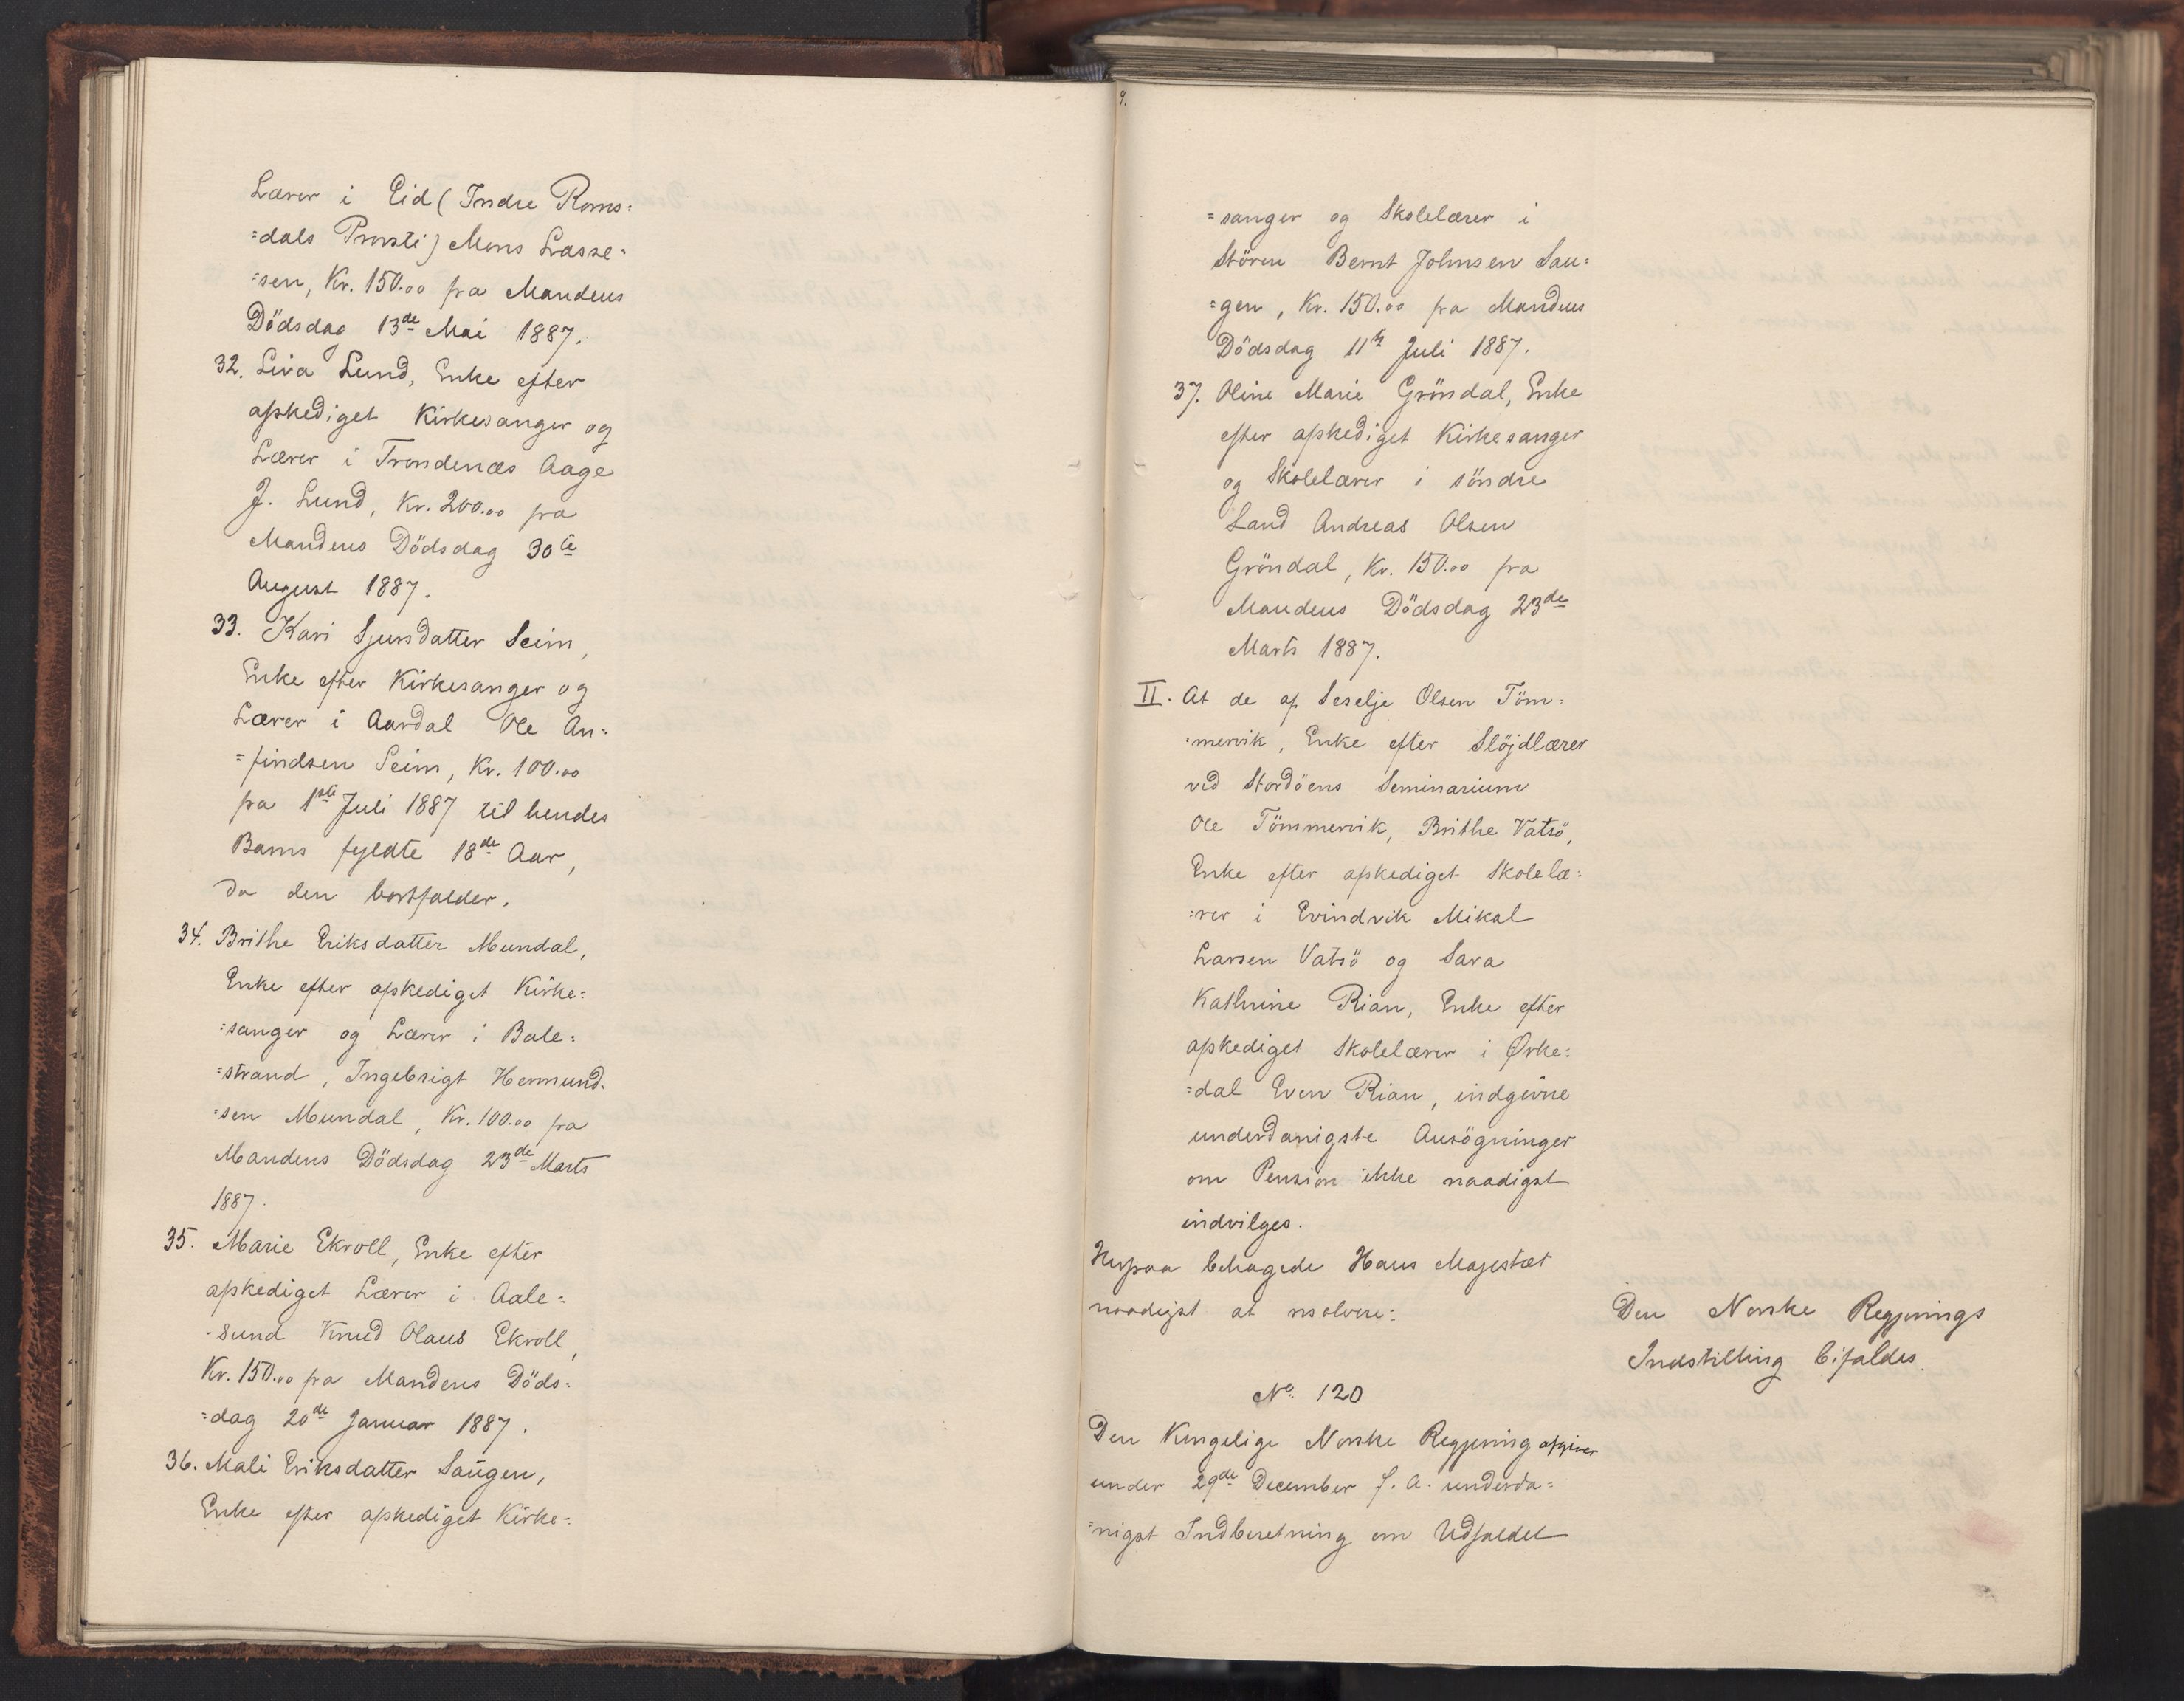 Lærer i Eid (Indre Roms=
=dals Provsti) Mons Lasse=
=sen, Kr. 150.00 fra Mandens
Dödsdag 13de Mai 1887.
32. Liva Lund, Enke efter
afskediget Kirkesanger og
Lærer i Trondenæs Aage
J. Lund, Kr. 200.00 fra
Mandens Dödsdag 30te
August 1887.
33. Kari Sjursdatter Seim,
Enke efter Kirkesanger og
Lærer i Aardal Ole An=
=findsen Seim, Kr. 100.00
fra 1ste Juli 1887 til hendes
Barns fyldte 18de Aar,
da den bortfalder.
34. Brithe Eriksdatter Mundal,
Enke efter afskediget Kirke=
=sanger og Lærer i Bale=
=strand, Ingebrigt Hermund=
=sen Mundal, Kr. 100.00 fra
Mandens Dödsdag 23de Marts
1887.
35. Marie Ekroll, Enke efter
afskediget Lærer i Aale=
=sund Knud Olaus Ekroll,
Kr. 150.00 fra Mandens Döds=
=dag 20de Januar 1887.
36. Mali Eriksdatter Saugen,
Enke efter afskediget Kirke=
9.
=sanger og Skolelærer i
Stören Bernt Johnsen Sau=
=gen, Kr. 150.00 fra Mandens
Dödsdag 11te Juli 1887.
37. Oline Marie Gröndal, Enke
efter afskediget Kirkesanger
og Skolelærer i söndre
Land Andreas Olsen
Gröndal, Kr. 150.00 fra
Mandens Dödsdag 23de
Marts 1887.
II. At de af Seselje Olsen Töm=
=mervik, Enke efter Slöjdlærer
ved Stordöens Seminarium
Ole Tömmervik, Brithe Vatsö,
Enke efter afskediget Skolelæ=
=rer i Evindvik Mikal
Larsen Vatsö og Sara
Kathrine Rian, Enke efter
afskediget Skolelærer i Ørke=
=dal Even Rian, indgivne
underdanigste Ansögninger
om Pension ikke naadigst
indvilges.
Herpaa behagede Hans Majestæt
naadigst at resolvere:
Den Norske Regjerings
Indstilling bifaldes.
No. 120
Den Kongelige Norske Regjering afgiver
under 29de December f. A. underda=
=nigst Indberetning om Udfaldet